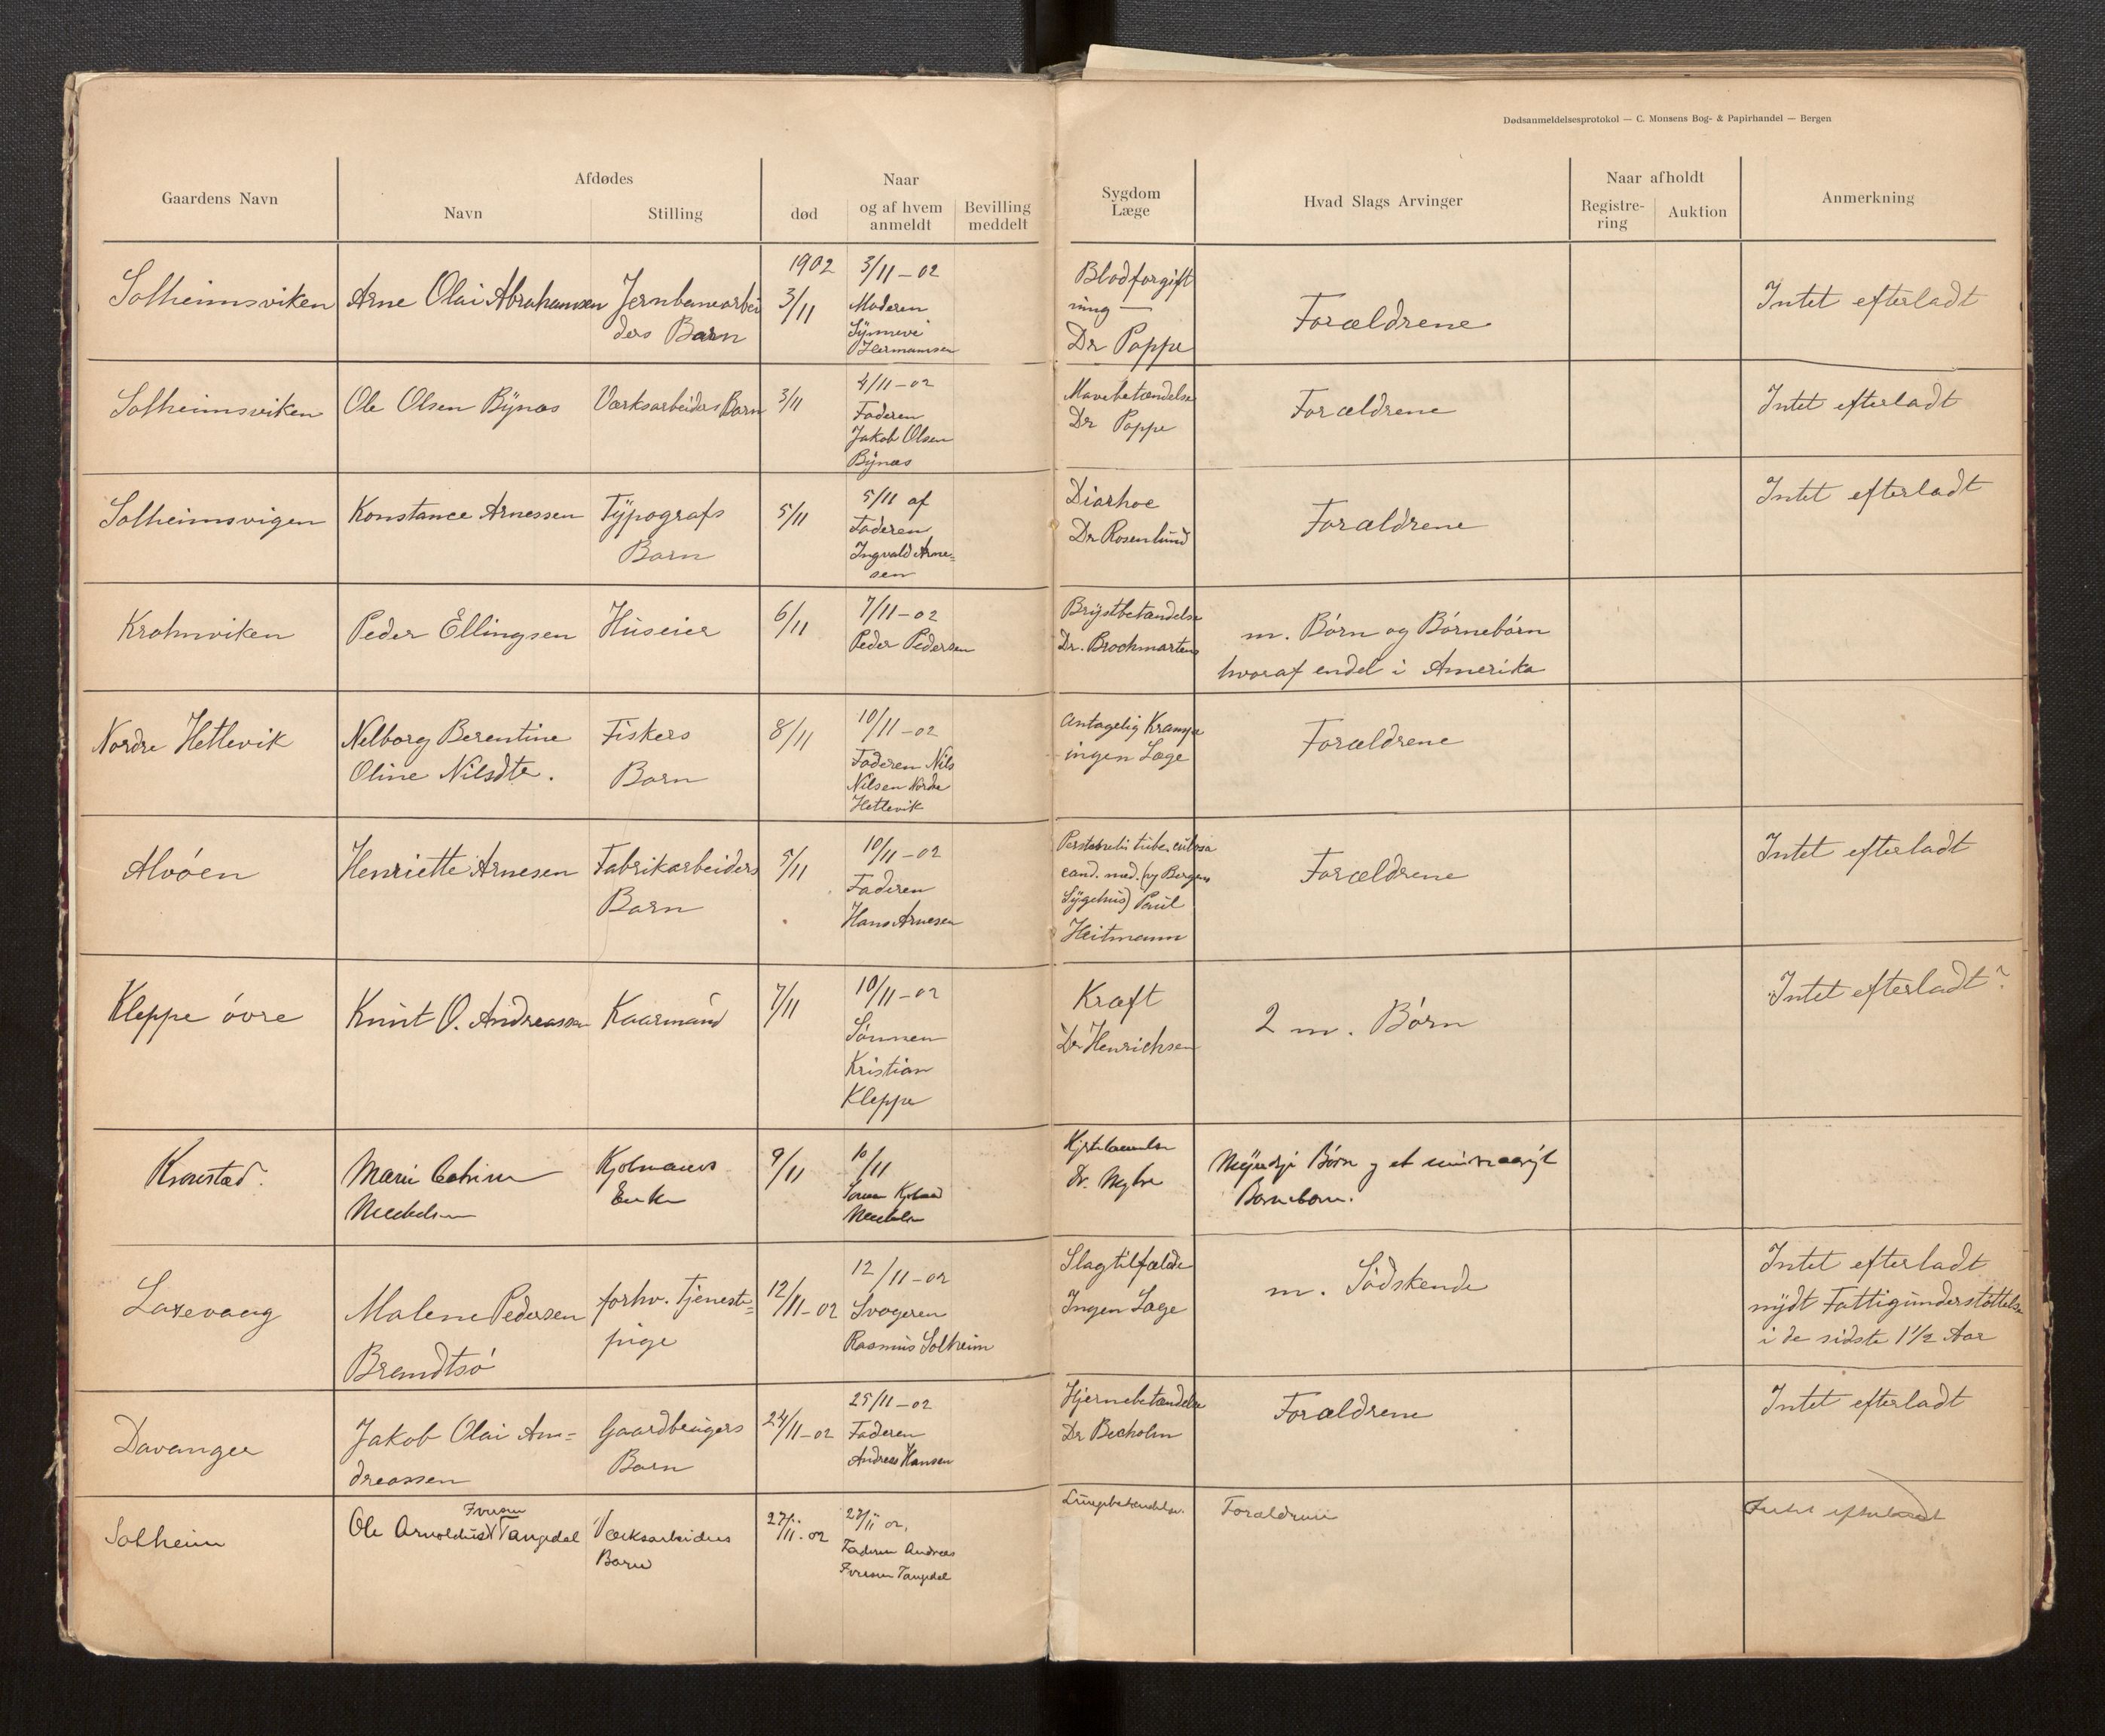 Dødsanmeldelsesprotokol — C. Monsens Bog- & Papirhandel — Bergen
Gaardens Navn
Afdødes
Navn
Stilling
Naar
død
og af hvem
anmeldt
Bevilling
meddelt
Sygdom
Læge
Hvad Slags Arvinger
Naar afholdt
Registre-
ring
Auktion
Anmerkning
Solheimsviken
Arne Olai Abrahamsen
Jernbanearbei
ders Barn
1902
3/11
3/11 - 02
Moderen
Synneve
Hermansen
Blodforgift
ning —
Dr Poppe
Forældrene
Intet efterladt
Solheimsviken
Ole Olsen Bynæs
Værksarbeiders Barn
3/11
4/11 - 02
Faderen
Jakob Olsen
Bynæs
Mavebetændelse
Dr Poppe
Forældrene
Intet efterladt
Solheimsvigen
Konstance Arnessen
Typografs
Barn
5/11
5/11 af
Faderen
Ingvald Arne=
sen
Diarhoe
Dr Rosenlund
Forældrene
Intet efterladt
Krohnviken
Peder Ellingsen
Huseier
6/11
7/11 - 02
Peder Pedersen
Brystbetændelse
Dr. Brochmartens
m. Børn og Børnebørn
hvoraf endel i Amerika
Nordre Hetlevik
Nelborg Berentine
Oline Nilsdte.
Fiskers
Barn
8/11
10/11 - 02
Faderen Nils
Nilsen Nordre
Hetlevik
Antagelig Krampe
ingen Læge
Forældrene
Alvøen
Henriette Arnesen
Fabrikarbeiders
Barn
5/11
10/11 - 02
Faderen
Hans Arnesen
tuberculosa
cand. med. (vg Bergens
Sygehus) Paul
Heitmann
Forældrene
Intet efterladt
Kleppe øvre
Knut O. Andreassen
Kaarmand
7/11
10/11 - 02
Sønnen
Kristian
Kleppe
Kræft
Dr Henrichsen
2 m. Børn
Intet efterladt?
Kronstad.
Marie Catrine
Kjøbmands
Enke
9/11
10/11
Dr. Myhre
Myndige Børn og et
Barnebarn.
Laxevaag
Malene Pedersen
Brandtsø
forhv. Tjeneste=
pige
12/11 - 02
12/11 - 02
Svogeren
Rasmus Solheim
Slagtilfælde
Ingen Læge
m. Sødskende
Intet efterladt
nydt Fattigunderstøttelse
i de sidste 1 1/2 Aar
Davanger
Jakob Olai An=
dreassen
Gaardbrugers
Barn
24/11 - 02
25/11 - 02
Faderen
Andreas Hansen
Hjernebetændelse
Dr Becholm
Forældrene
Intet efterladt
Solheim
Ole Arnoldus Tangedal
Værksarbeiders
Barn
27/11 - 02
27/11 02,
Faderen Andreas
Tangedal
Lungebetændelse.
Forældrene
Intet efterladt